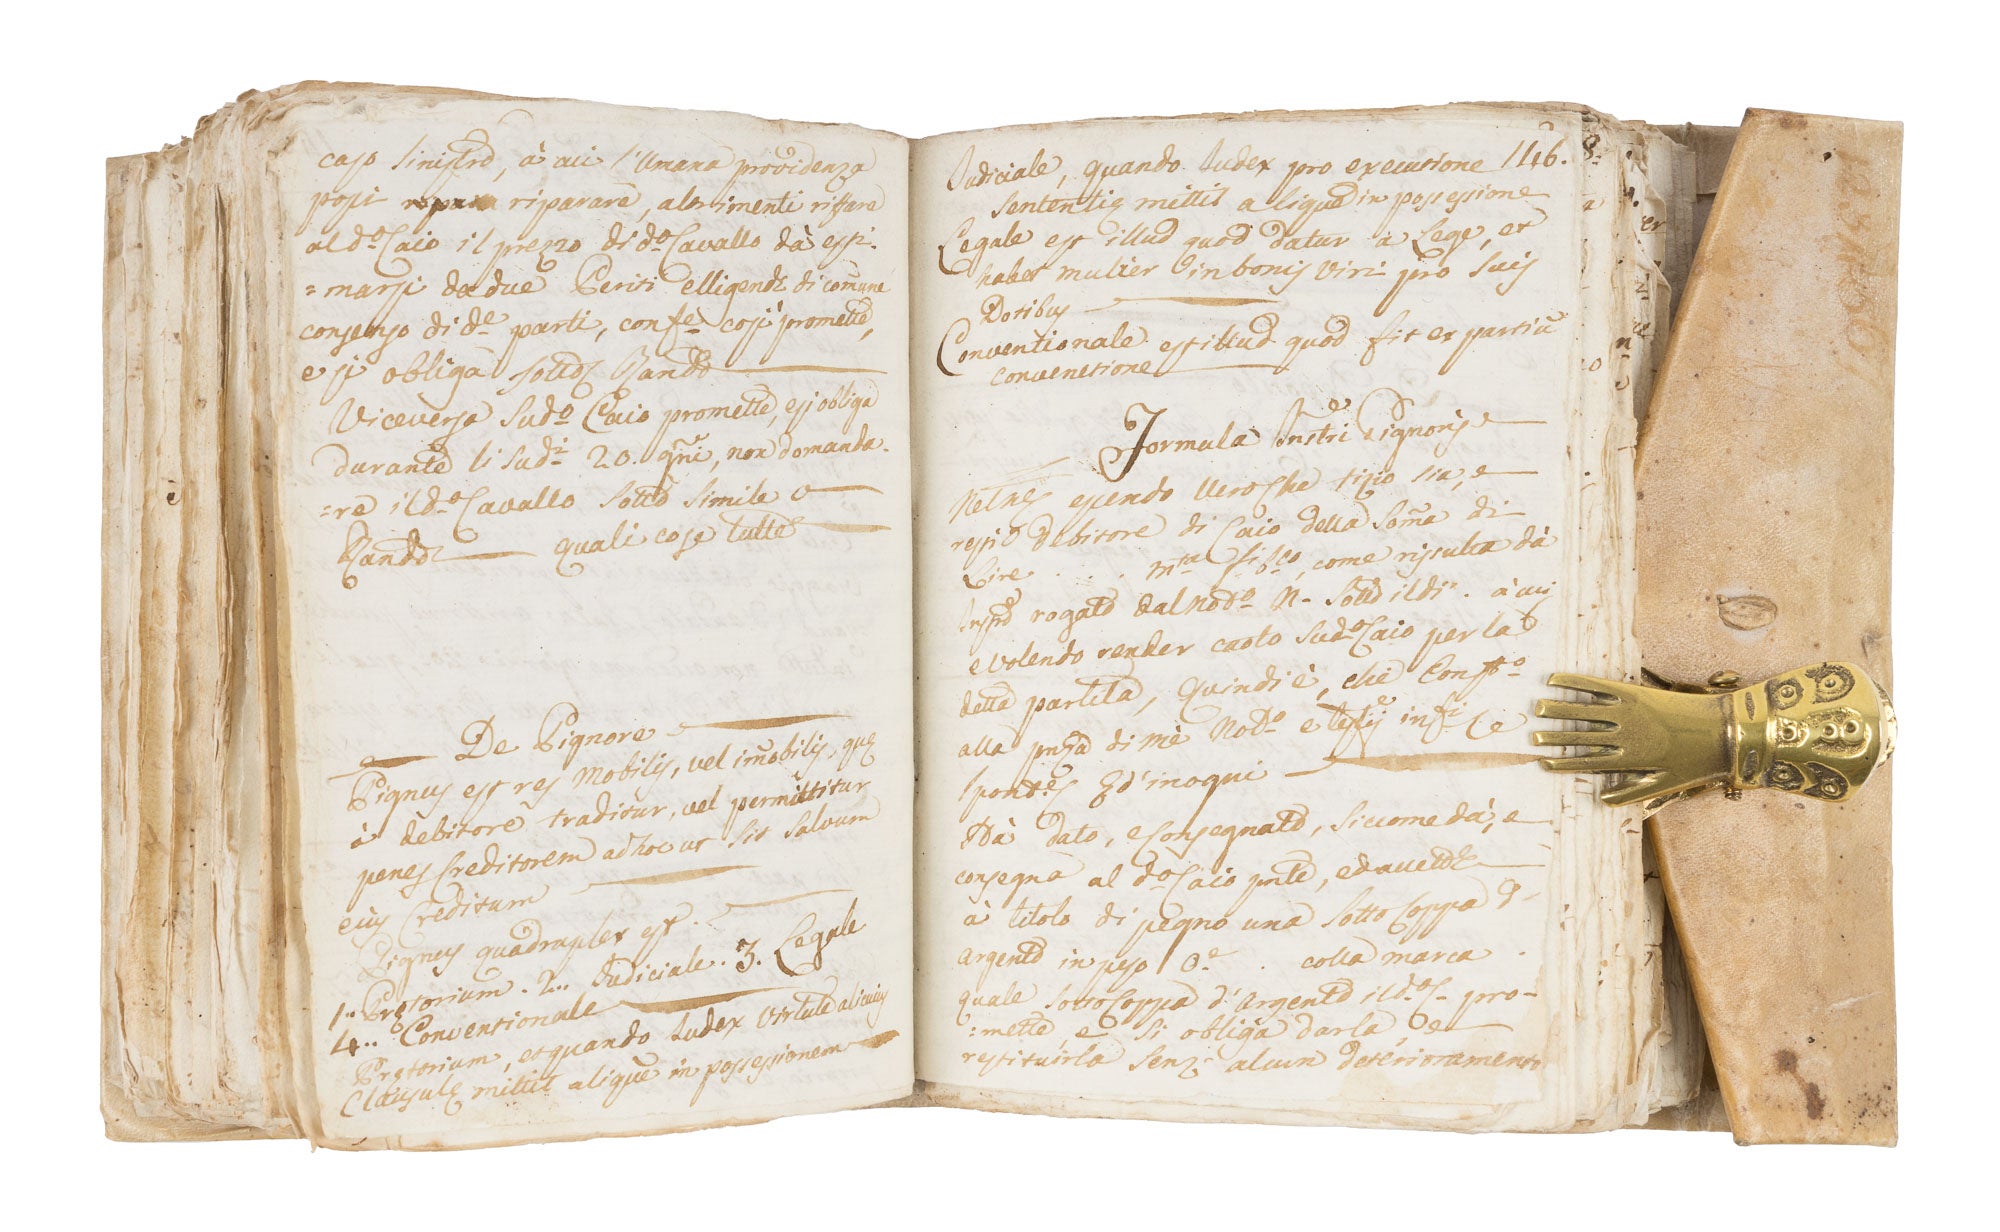 caso sinistro, à cui l'Umana providenza
possi riparare, altrimenti riffare
al d.º Caio il prezzo di d.º Cavallo dà essi-
=marsi da due Periti elligendi di comune
consenso di d.e parti, conf.e così promette,
e si obliga sotto Bando
Viceversa Sud.º Caio promette, e si obliga
durante li sud.i 20. gñi, non domanda-
=re il d.º Cavallo sotto simile
Bando quali cose tutte
De Pignore
Pignus est res mobilis, vel imobilis, quę
à debitore traditur, vel permittitur
penes Creditorem ad hoc ut sit salvum
eius Creditum
Pignus quadruplex est.
1.. Prętorium. 2.. Judiciale. 3. Legale
4.. Conventionale
Prętorium, est quando Judex virtute alicuius
Clausulę mittit aliquē in possessionem
146.
Judiciale, quando Judex pro executione
sententię mittit aliquē in possessione
Legale est illud quod datur à Lege, et
habet mulier in bonis viri pro suis
Dotibus
Conventionale est illud quod fit ex partiū
convenctione
Formula Instri Pignoris
essendo vero che tizio sia, e
resti debitore di Caio della soma di
Lire come rissulta dà
rogato dal Nod.º N. sotto il di. à cui
e volendo render caoto sud.º Caio per la
detta partita, Quindi è, che Const.º
alla pnza di mè Nod.º e testij inf.i
spont.e Ed' inoqui
Hà dato, e consegnato, siccome dà, e
consegna al d.º Caio pnte, ed avette
à titolo di pegno una sotto coppa d'
argento in peso O.e . colla marca .
quale sottocoppa d'Argento il d.º C. pro-
=mette, e si obliga darla, e
restituirla senz. alcun deterioramento